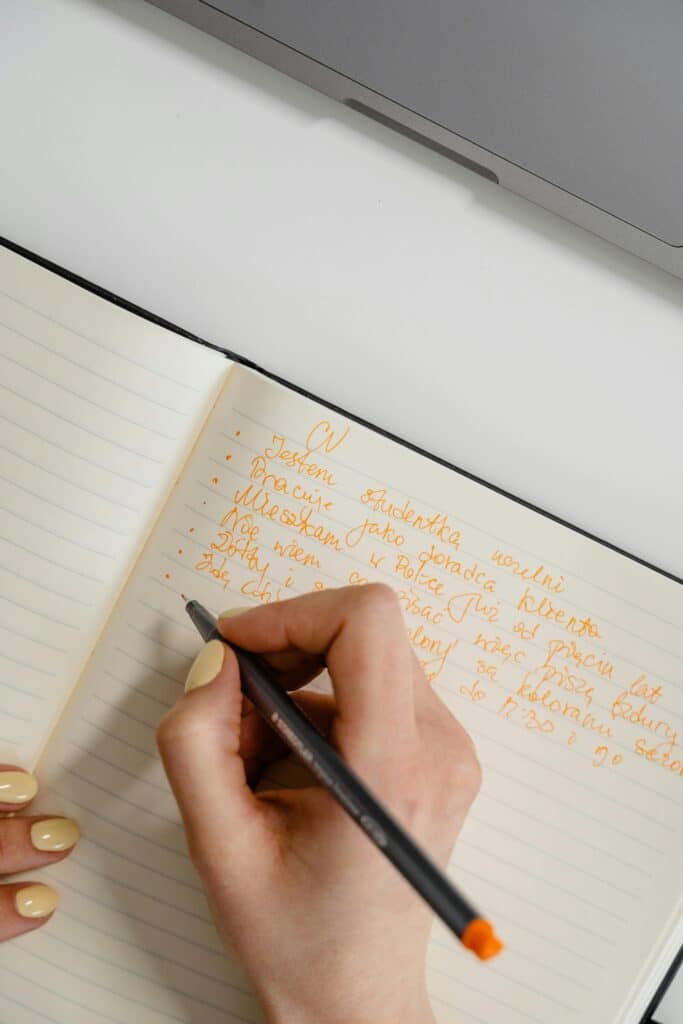 CV
• Jestem studentką uczelni
• Pracuję jako doradca klienta
• Mieszkam w Polsce już od pięciu lat
• Nie wiem co pisać więc piszę bzdury
• Żółty i są kolorami sezonu
• do 17:30 i go